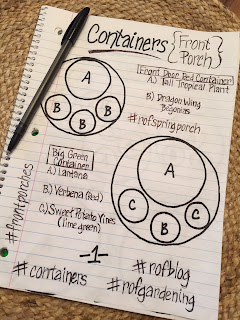 Containers {Front Porch}
Front Door Red Container
A) Tall Tropical Plant
B) Dragon Wing Begonias
#rofspringporch
A
B
B
B
Big Green Container
A) Lantana
B) Verbena (Red)
C) Sweet Potato Vines
(lime green)
A
B
B
C
C
#frontporches
-1-
#containers
#rofblog
#rofgardening